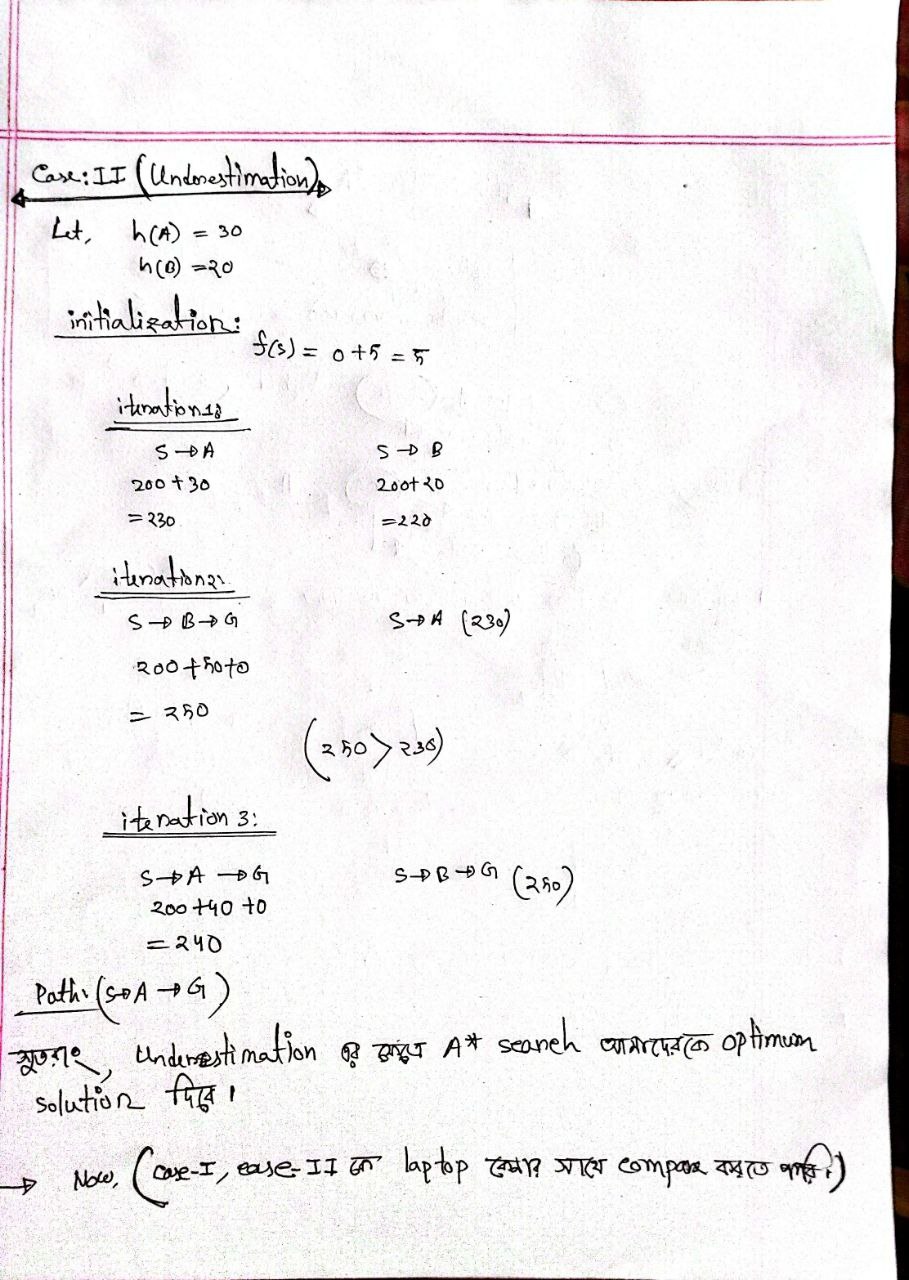 Case: II (Underestimation)
Let, h(A) = 30
h(B) = 20
initialization:
f(s) = 0+5 = 5
iteration 1:
S → A S → B
200 + 30 200+20
= 230 = 220
iteration 2:
S → B → G S → A (230)
200 + 50 + 0
= 250
(250 > 230)
iteration 3:
S → A → G S → B → G (250)
200 + 40 + 0
= 240
Path: (S → A → G)
সুতরাং, Underestimation এর ক্ষেত্রে A* search আমাদেরকে optimum
solution দিবে।
→ Now, (case-I, case-II কে laptop কেনার সাথে compare করতে পারি।)